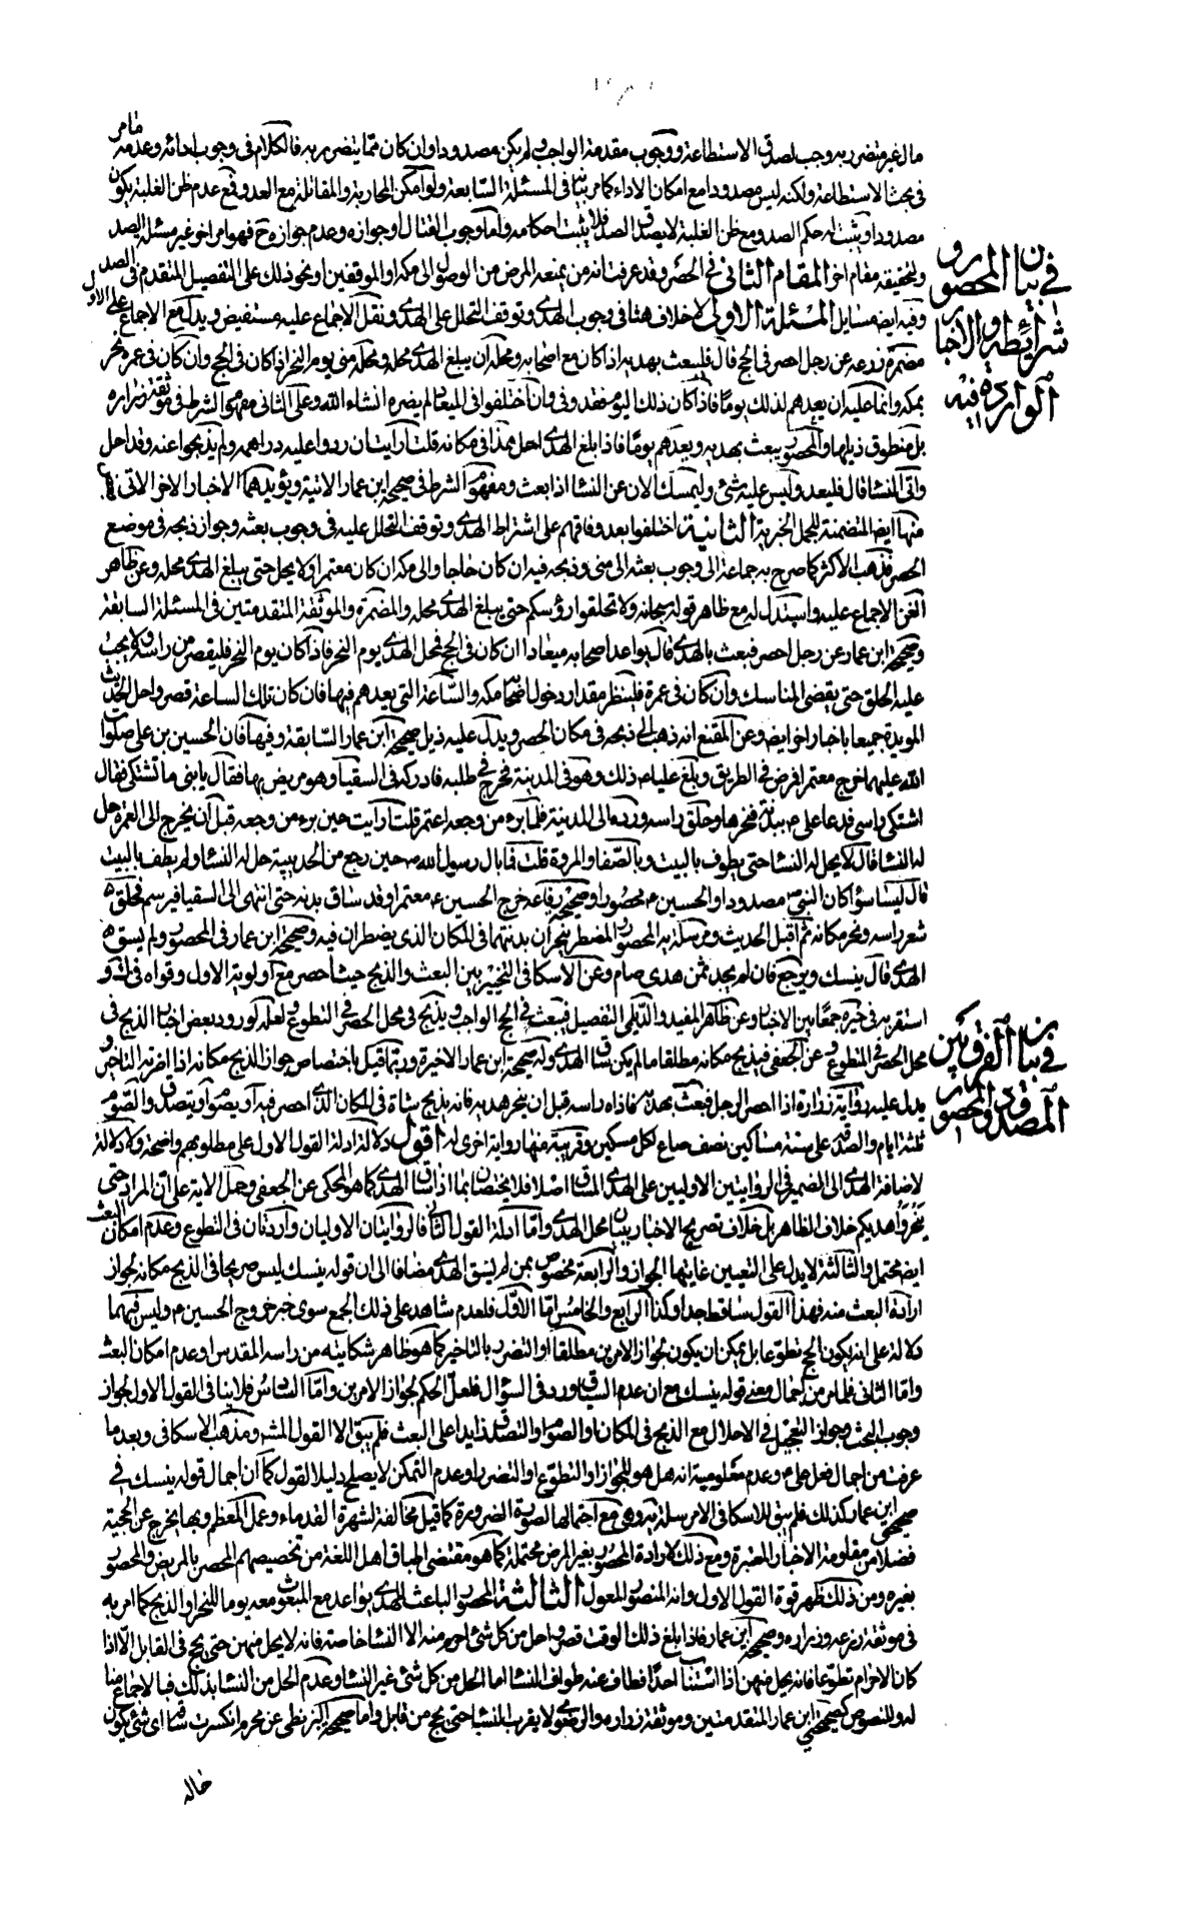 مال غير متضرر به وجب لصدق الاستطاعة ووجوب مقدمة الواجب ولم يكن مصدودا وان كان مما يتضرر به فالكلام فى وجوب ادائه وعدمه ما مر
فى بحث الاستطاعة ولكنه ليس مصدودا مع امكان الاداء كما مر بيانه فى المسئلة السابعة ولو امكن المحاربة والمقاتلة مع العدو فمع عدم ظن الغلبة يكون
مصدودا ويثبت له حكم الصد ومع ظن الغلبة لا يصدق الصد فلا يثبت احكامه واما وجوب القتال او جوازه وعدم جوازه ح فهو امر اخر غير مسئلة الصد
ولتحقيقه مقام اخر المقام الثانى فى الحصر وقد عرفت انه من يمنعه المرض من الوصول الى مكة او الموقفين او نحو ذلك على التفصيل المتقدم فى الصد
وفيه ايضا مسايل المسئلة الاولى لا خلاف هنا فى وجوب الهدى وتوقف التحلل على الهدى ونقل الاجماع عليه مستفيض ويدل عليه مع الاجماع على الاول
مضمرة زرعة عن رجل احصر فى الحج قال فليبعث بهديه اذا كان مع اصحابه ومحله ان يبلغ الهدى محله ومحله منى يوم النحر اذا كان فى الحج وان كان فى عمرة نحر
بمكة وانما عليه ان يعدهم لذلك يوما فاذا كان ذلك اليوم فقد وفى وان اختلفوا فى الميعاد لم يضره انشاء الله وعلى الثانى مفهوم الشرط فى موثقة زرارة
بل منطوق ذيلها والمحصور يبعث بهديه ويعدهم يوما فاذا بلغ الهدى احل هذا فى مكانه قلت ارايت ان ردوا عليه دراهمه ولم يذبحوا عنه وقد احل
واتى النساء قال فليعد وليس عليه شئ وليمسك الان عن النساء اذا بعث ومفهوم الشرط فى صحيحة ابن عمار الاتية ويؤيدهما الاخبار الاخر الاتى
منها ايضا المتضمنة للجمل الخبرية الثانية اختلفوا بعد وفاقهم على اشتراط الهدى وتوقف التحلل عليه فى وجوب بعثه وجواز ذبحه فى موضع
الحصر فذهب الاكثر كما صرح به جماعة الى وجوب بعثه الى منى وذبحه فيه ان كان حاجا والى مكة ان كان معتمرا ولا يحل حتى يبلغ الهدى محله وعن ظاهر
الغن الاجماع عليه واستدل له مع ظاهر قوله سبحانه ولا تحلقوا رؤسكم حتى يبلغ الهدى محله والمضمرة والموثقة المتقدمتين فى المسئلة السابقة
وصحيحة ابن عمار عن رجل احصر فبعث بالهدى قال يواعد اصحابه ميعادا ان كان فى الحج فمحل الهدى يوم النحر فاذا كان يوم النحر فليقصر من راسه ولا يجب
عليه الحلق حتى يقضى المناسك وان كان فى عمرة فلينظر مقدار دخول اصحابه مكة والساعة التى يعدهم فيها فان كان تلك الساعة قصر واحل الحديث
المويدة جميعا باخبار اخر ايضا وعن المقنع انه ذهب الى ذبحه فى مكان الحصر ويدل عليه ذيل صحيحة ابن عمار السابقة وفيها فان الحسين بن على صلوات
الله عليهما خرج معتمرا فمرض فى الطريق وبلغ عليا م ذلك وهو فى المدينة فخرج فى طلبه فادركه فى السقيا وهو مريض بها فقال يا بنى ما تشتكى فقال
اشتكى راسى فدعا على م ببدنة فنحرها وحلق راسه ورده الى المدينة فلما برء من وجعه اعتمر قلت ارايت حين برء من وجعه قبل ان يخرج الى العمرة حل
له النساء قال لا يحل له النساء حتى يطوف بالبيت وبالصفا والمروة قلت فما بال رسول الله ص حين رجع من الحديبية حل له النساء ولم يطف بالبيت
قال ليسا سواء كان النبى ص مصدودا والحسين م محصورا وصحيحة رفاعة خرج الحسين ع معتمرا وقد ساق بدنة حتى انتهى الى السقيا فبرسم فحلق
شعر راسه ونحر مكانه ثم اقبل الحديث ومرسلة يه المحصور المضطر ينحران بدنتهما فى المكان الذى يضطران فيه وصحيحة ابن عمار فى المحصور ولم يسق
الهدى قال ينسك ويرجع فان لم يجد ثمن هدى صام وعن الاسكافى التخيير بين البعث والذبح حيث احصر مع اولوية الاول وقواه فى
استقربه فى خيرة جمعا بين الاخبار وعن ظاهر المفيد والديلمى التفصيل فيبعث فى الحج الواجب ويذبح فى محل الحصر فى التطوع ولعله لورود بعض اخبار الذبح فى
محل الحصر فى المتطوع وعن الجعفى فيذبح مكانه مطلقا ما لم يكن ساق الهدى وله صحيحة ابن عمار الاخيرة وربما قيل باختصاص جواز الذبح مكانه اذا اضر به التاخير و
يدل عليه رواية زرارة اذا احصر الرجل فبعث بهديه فاذاه راسه قبل ان ينحر هديه فانه يذبح شاة فى المكان الذى احصر فيه او يصوم او يتصدق والصوم
ثلثة ايام والصدقة على ستة مساكين نصف صاع لكل مسكين وقريبة منها رواية اخرى له اقول دلالة ادلة القول الاول على مطلوبهم واضحة ولا دلالة
لاضافة الهدى الى الضمير فى الروايتين الاوليين على الهدى المساق اصلا فلا يختصان بما اذا ساق الهدى كما هو المحكى عن الجعفى وحمل الاية على ان المراد حتى
ينحروا هديكم خلاف الظاهر بل خلاف تصريح الاخبار ببيان محل الهدى واما ادلة القول الثانى فالروايتان الاوليان واردتان فى التطوع وعدم امكان البعث
ايضا محتمل والثالثة لا يدل على التعيين غايتها الجواز والرابعة مخصوص بمن لم يسق الهدى مضافا الى ان قوله ينسك ليس صريحا فى الذبح مكانه لجواز
ارادة البعث منه فهذا القول ساقط جدا وكذا الرابع والخامس اما الاول فلعدم شاهد على ذلك الجمع سوى خبر خروج الحسين م وليس فيهما
دلالة على انه يكون الحج تطوعا بل يمكن ان يكون لجواز الامرين مطلقا او التضرر بالتاخير كما هو ظاهر شكايته من راسه المقدس او عدم امكان البعث
واما الثانى فلما مر من اجمال معنى قوله ينسك مع ان عدم السياق ورد فى السؤال فلعل الحكم لجواز الامرين واما السادس فلا ينافى القول الاول لجواز
وجوب البعث وجواز التعجيل فى الاحلال مع الذبح فى المكان او الصوم او التصدق زايدا على البعث فلم يبق الا القول المشهور ومذهب الاسكافى وبعد ما
عرفت من اجمال فعل على م وعدم معلومية انه هل هو للجواز او التطوع او التضرر او عدم التمكن لا يصلح دليلا لقول كما ان اجمال قوله ينسك فى
صحيحة ابن عمار كذلك فلم يبق للاسكافى الا مرسلة يه وهى مع احتمالها لصورة الضرورة كما قيل مخالفة لشهرة القدماء وعمل المعظم وبها يخرج عن الحجية
فضلا من مقاومة الاخبار المعتبرة ومع ذلك لارادة المحصور بغير المرض محتملة كما هو مقتضى اطباق اهل اللغة من تخصيصهم الحصر بالمريض والمحصور
بغيره ومن ذلك ظهر قوة القول الاول وانه المنصور المعول الثالثة المحصور الباعث للهدى يواعد مع المبعوث معه يوما للنحر او الذبح كما امر به
فى موثقة زرعة وزرارة وصحيحة ابن عمار فاذا بلغ ذلك الوقت قصر واحل من كل شئ احرم منه الا النساء خاصة فانه لا يحل منهن حتى يحج فى القابل الا اذا
كان الاحرام تطوعا فانه يحل منهن اذا استناب احدا فطاف عنه طواف النساء اما الحل من كل شئ غير النساء وعدم الحل من النساء بذلك فبالاجماع منا
له وللنصوص كصحيحتى ابن عمار المتقدمتين وموثقة زرارة والرضوى ولا يقرب النساء حتى يحج من قابل واما صحيحة البزنطى عن محرم انكسرت ساقه اى شئ يكون
حاله
فى بيان المحصور و
شرائطه والاخبار
الواردة فيه
فى بيان الفرق بين
المصدود والمحصور